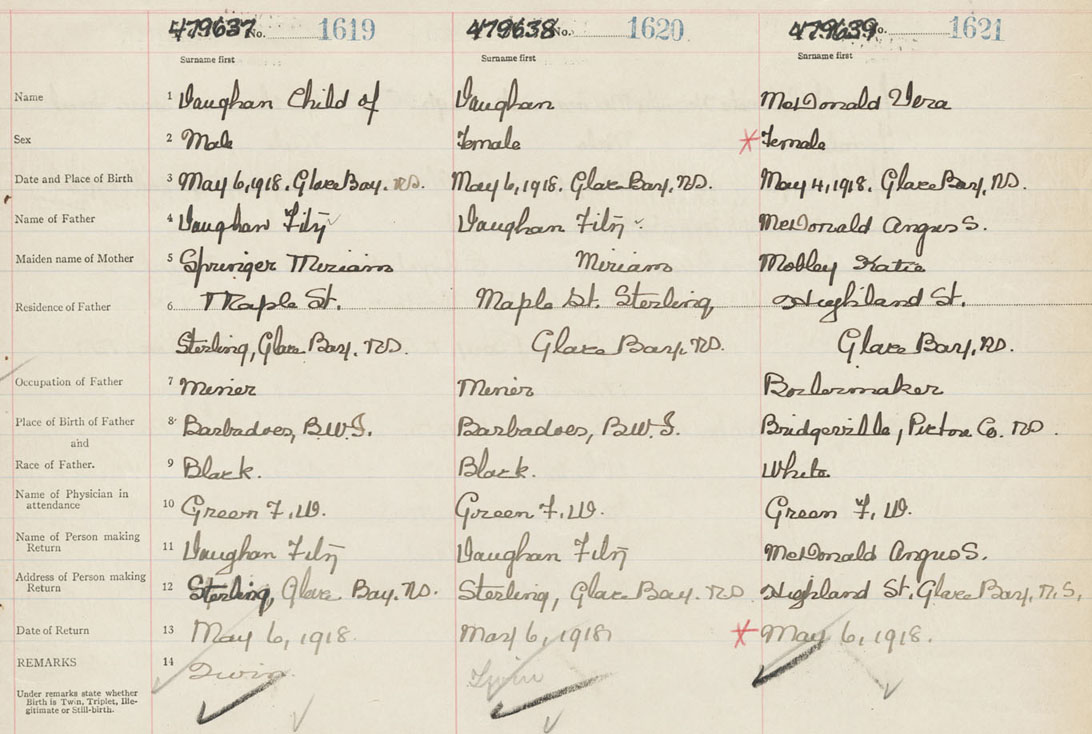 479637 No. 1619 479638 No. 1620 479639 No. 1621
Surname first Surname first Surname first
Name 1 Vaughan Child of Vaughan McDonald Vera
Sex 2 Male Female Female
Date and Place of Birth 3 May 6, 1918. Glace Bay. N.S. May 6, 1918. Glace Bay, N.S. May 4, 1918. Glace Bay, N.S.
Name of Father 4 Vaughan Vaughan McDonald Angus S.
Maiden name of Mother 5 Springer Miriam Miriam Mobley Katie
Residence of Father 6 Maple St. Maple St. Sterling, Highland St.
Sterling, Glace Bay. N.S. Glace Bay, N.S. Glace Bay, N.S.
Occupation of Father 7 Miner Miner Boilermaker
Place of Birth of Father 8 Barbadoes, B.W.I. Barbadoes, B.W.I. Bridgeville, Pictou Co. N.S.
and
Race of Father. 9 Black. Black. White
Name of Physician in
attendance 10 Green F. W. Green F. W. Green F. W.
Name of Person making
Return 11 Vaughan Vaughan McDonald Angus S.
Address of Person making
Return 12 Sterling, Glace Bay. N.S. Sterling, Glace Bay. N.S. Highland St, Glace Bay, N.S,
Date of Return 13 May 6, 1918. May 6, 1918 May 6, 1918.
REMARKS 14 Twin. Twin
Under remarks state whether
Birth is Twin, Triplet, Ille-
gitimate or Still-birth.